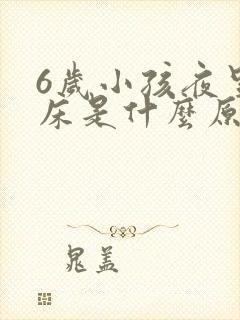 6歲小孩夜
床是什麼原
晁盖